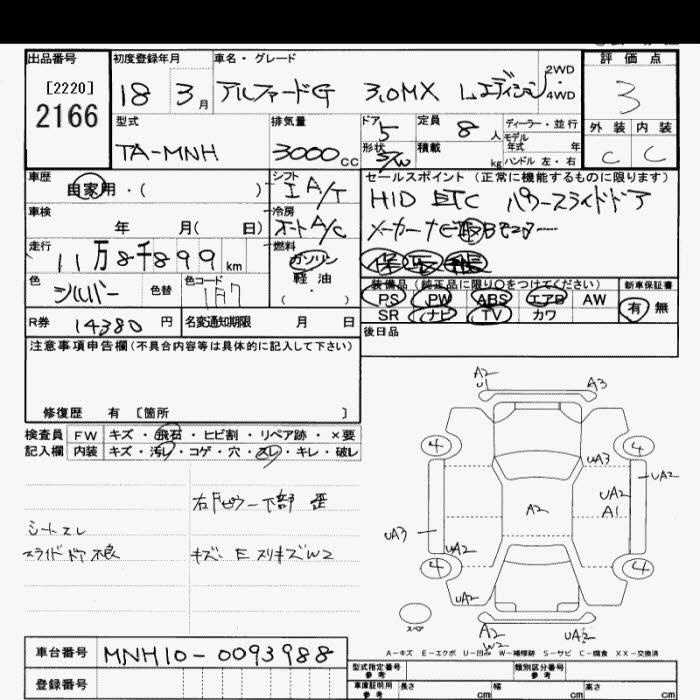 出品番号 初度登録年月 車名・グレード 評価点
[2220] 2WD
2166 18 3月 アルファードG 3.0MX Lエディション 4WD 3
型式 排気量 ドア 定員 ディーラー・並行 外装 内装
5 8人 モデル年式 年
TA-MNH 3000cc 形状 S/W 積載 kg ハンドル 左・右 C C
車歴 シフト セールスポイント (正常に機能するものに限ります)
自家用・( ) I A/T HID ETC パワースライドドア
車検 冷房 メーカーナビ
年 月( 日) オートA/C
走行 燃料
11万8千899km ガソリン
軽油
( ・ )
色 色替 色コード 装備品 (純正品に限り○をつけてください) 新車保証書
シルバー PS PW ABS エアB AW 有 無
R券 14380円 名変通知期限 月 日 SR ナビ TV カワ
注意事項申告欄(不具合内容等は具体的に記入して下さい) 後日品
修復歴 有 [箇所 ]
検査員 FW キズ・飛石・ヒビ割・リペア跡・×要
記入欄 内装 キズ・汚レ・コゲ・穴・スレ・キレ・破レ
右Fピラー下部 歪
シートスレ
スライドドア不良 キズ E スリキズW2
A2
U A3
4 4
UA3
UA2
UA2
A2 A1
UA3 UA2
4 4
UA2 UA2
スペア
A2 UA2
W2
A-キズ E-エクボ U-凹み W-補修跡 S-サビ C-腐食 XX-交換済
車台番号 MNH10-0093988
登録番号
型式指定番号 参考 類別区分番号 参考
車庫証明用 参考 長さ cm 幅 cm 高さ cm